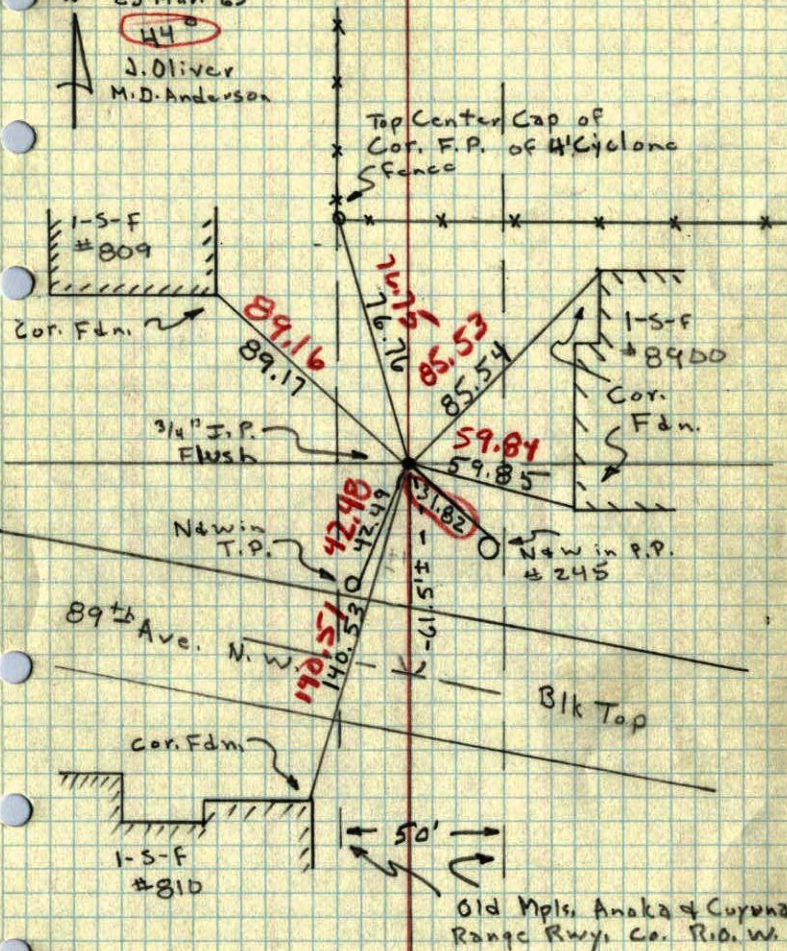 44°
J. Oliver
M.D. Anderson
Top Center Cap of
Cor. F.P. of 4' Cyclone
Fence
1-S-F
#809
Cor. Fdn.
89.16
89.17
76.75
76.76
85.53
85.54
1-S-F
#8900
Cor.
Fdn.
3/4" I.P.
Flush
59.84
59.85
31.82
42.48
42.49
N&W in
T.P.
N&W in P.P.
#245
-61.5'±
89th Ave. N.W.
140.51
140.53
Blk Top
Cor. Fdn.
1-S-F
#810
50'
Old Mpls, Anoka & Cuyuna
Range Rwy. Co. R.O.W.